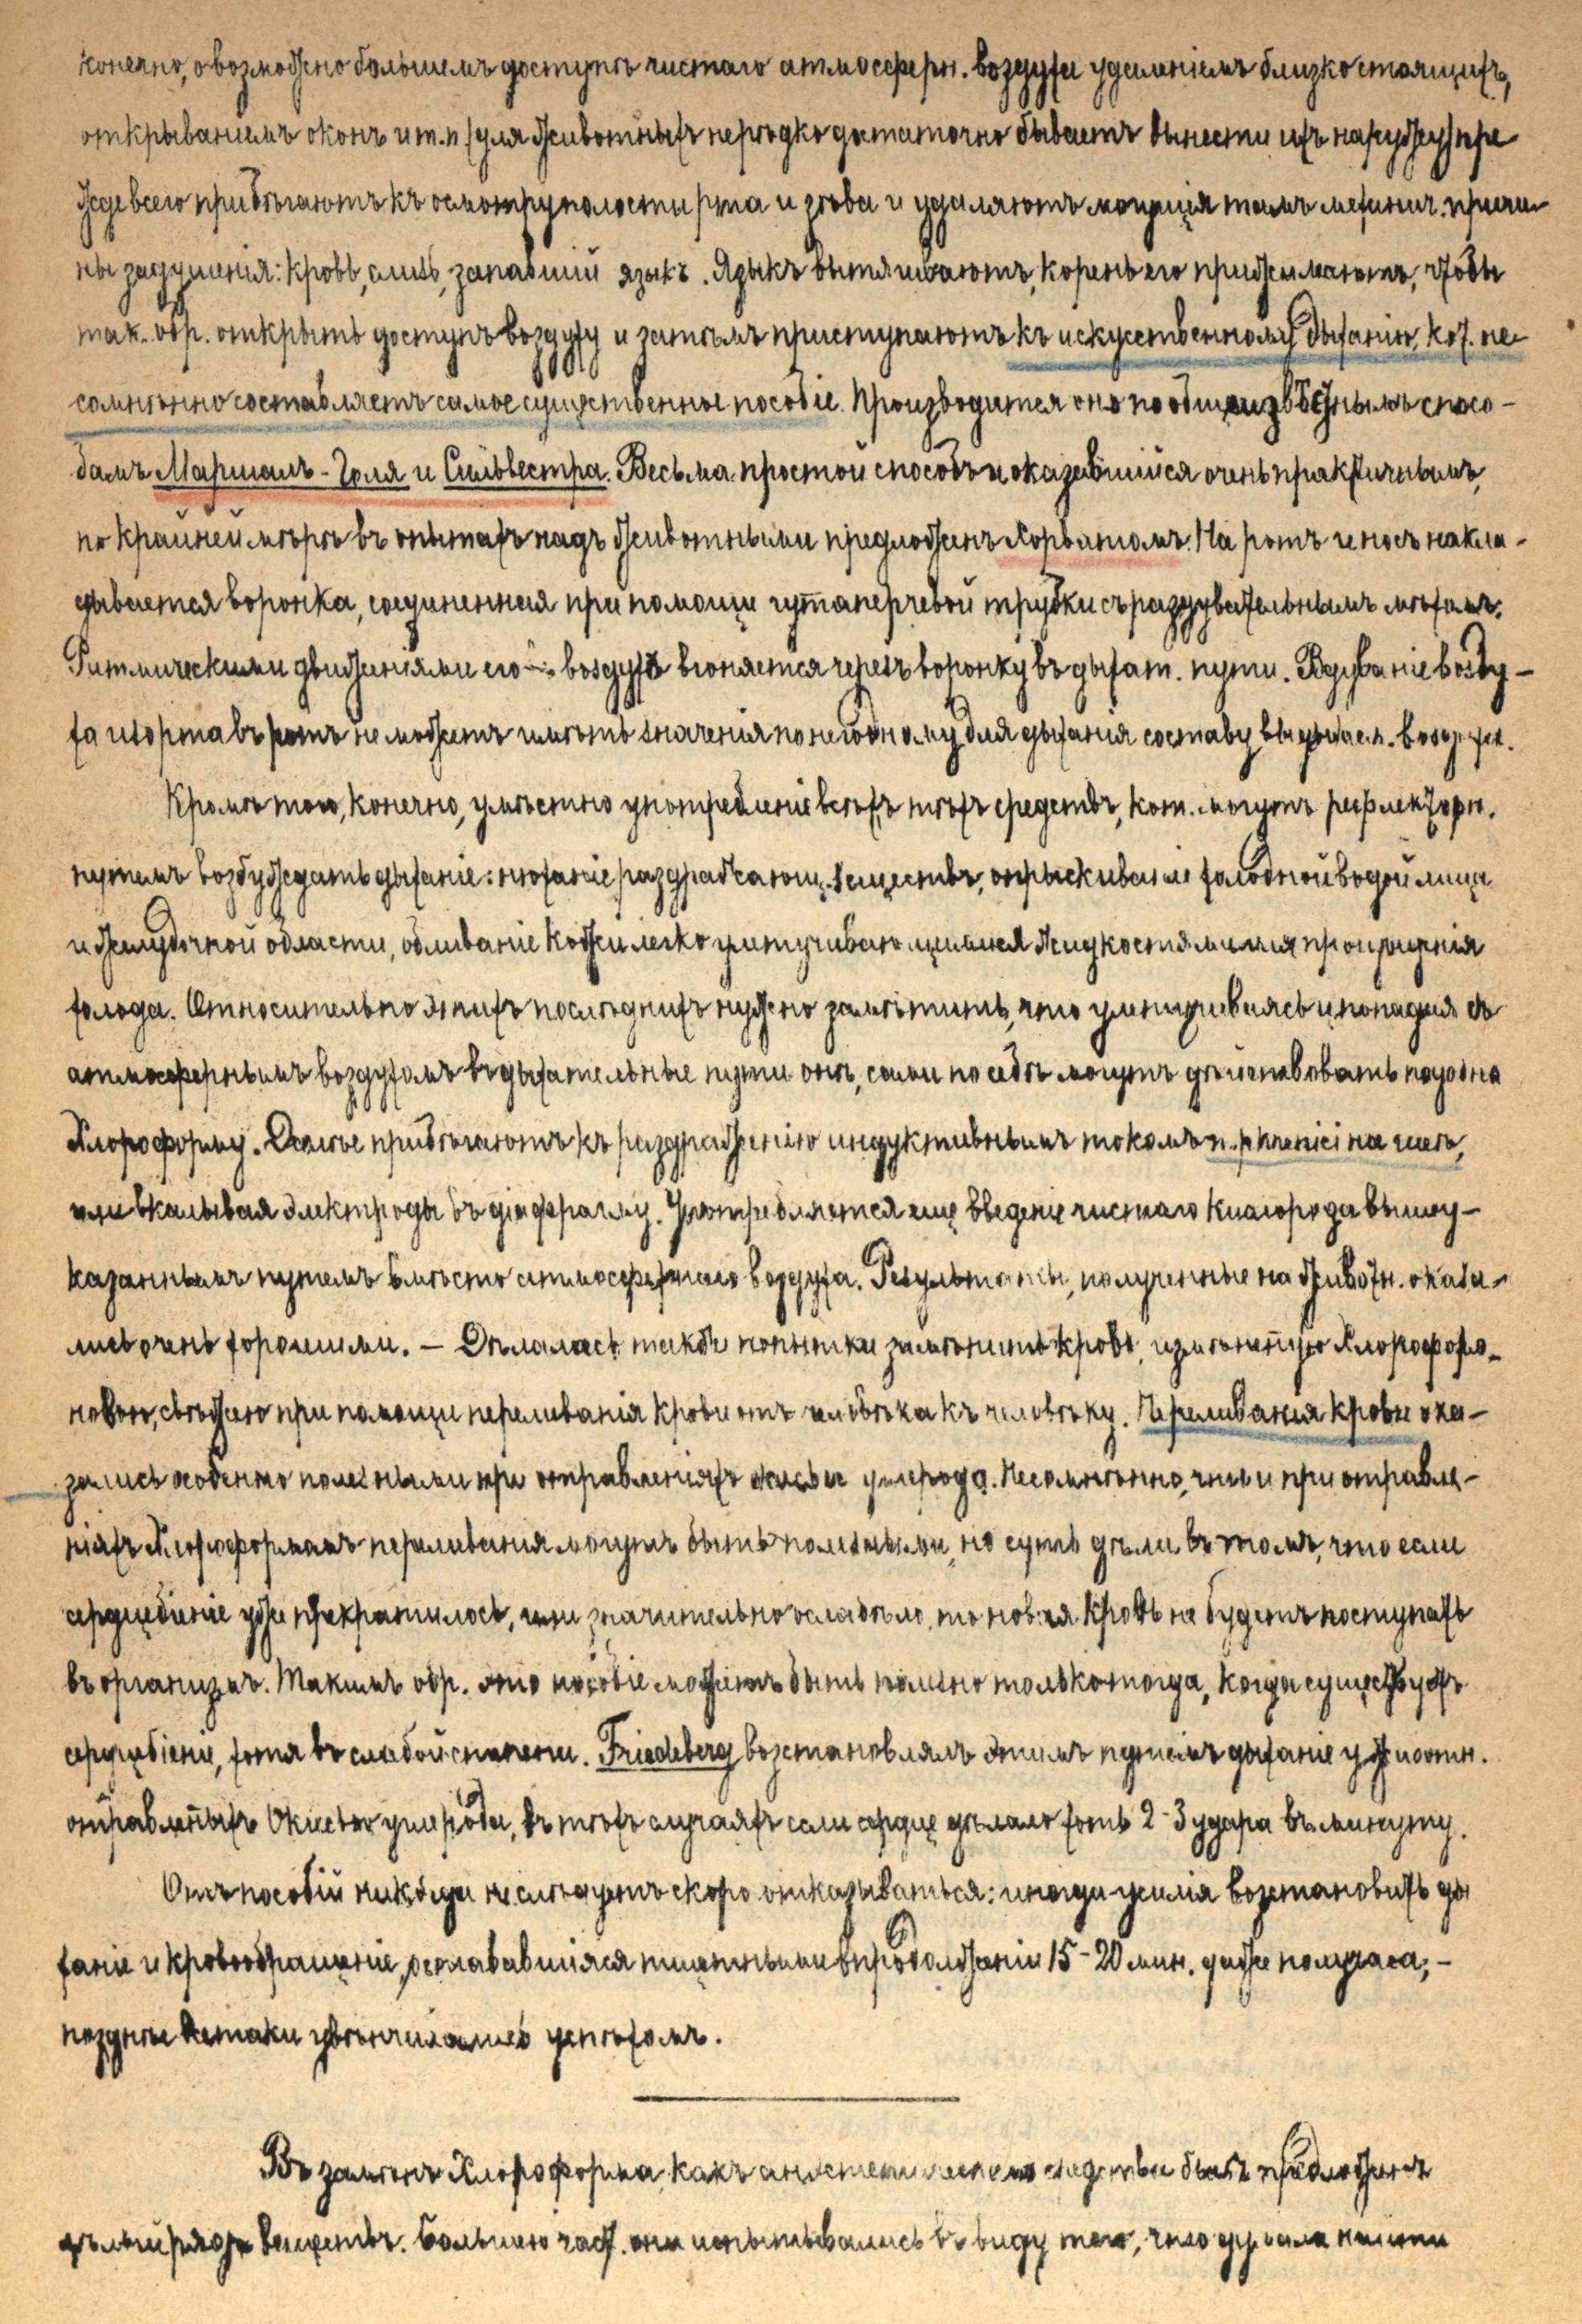 конечно, о возможно большемъ доступѣ чистаго атмосферн. воздуха удаленіемъ близко стоящихъ,
открываніемъ оконъ и т.п (для животныхъ нерѣдко достаточно бываетъ вынести ихъ наружу) пре
жде всего прибѣгаютъ къ осмотру полости рта и зѣва и удаляютъ могущія тамъ механич. причи-
ны задушенія: кровь, слизь, запавшій языкъ. Языкъ вытягиваютъ, корень его прижимаютъ, чтобы
так. обр. открыть доступъ воздуху и затѣмъ приступаютъ къ искусственному дыханію, кот. не-
сомнѣнно составляетъ самое существенное пособіе. Производится оно по общеизвѣстнымъ спосо-
бамъ Маршаль-Голя и Сильвестра. Весьма простой способъ и оказавшійся очень практичнымъ,
по крайней мѣрѣ въ опытахъ надъ животными предложенъ Хорватомъ. На ротъ и носъ накла-
дывается воронка, соединенная при помощи гутаперчевой трубки съ раздувательнымъ мѣхомъ.
Ритмическими движеніями его воздухъ вгоняется черезъ воронку въ дыхат. пути. Вдуваніе возду-
ха изо рта въ ротъ не можетъ имѣть значенія по негодному для дыханія составу выдыхаем. воздуха.
Кромѣ того, конечно, умѣстно употребленіе всѣхъ тѣхъ средствъ, кот. могутъ рефлекторн.
путемъ возбуждать дыханіе: нюханіе раздражающ. веществъ, опрыскиваніе холодной водой лица
и желудочной области, обливаніе кожи легко улетучивающимися жидкостями для произведенія
холода. Относительно этихъ послѣднихъ нужно замѣтить, что улетучиваясь и попадая съ
атмосфернымъ воздухомъ въ дыхательные пути онѣ, сами по себѣ могутъ дѣйствовать подобно
Хлороформу. Далѣе прибѣгаютъ къ раздраженію индуктивнымъ токомъ n. phrenici на шеѣ,
или вкалывая электроды въ діафрагму. Употребляется еще введеніе чистаго кислорода вышеу-
казаннымъ путемъ вмѣсто атмосфернаго воздуха. Результаты, полученные на животн. оказа-
лись очень хорошими. – Дѣлались также попытки замѣнить кровь, измѣненную Хлороформо-
новою, свѣжею при помощи переливанія крови отъ человѣка къ человѣку. Переливанія крови ока-
зались особенно полезными при отравленіяхъ окисью углерода. Несомнѣнно, что и при отравле-
ніяхъ Хлороформомъ переливанія могутъ быть полезными, но суть дѣла въ томъ, что если
сердцебіеніе уже прекратилось, или значительно ослабѣло, то новая кровь не будетъ поступать
въ организмъ. Такимъ обр. это пособіе можетъ быть полезно только тогда, когда существуетъ
сердцебіеніе, хотя въ слабой степени. Friedeberg возстановлялъ этимъ путемъ дыханіе у животн.
отравленныхъ Окисью углерода, въ тѣхъ случаяхъ если сердце дѣлало хоть 2-3 удара въ минуту.
Отъ пособій никогда не слѣдуетъ скоро отказываться: иногда усилія возстановить ды
ханіе и кровообращеніе, остававшіяся тщетными впродолженіи 15-20 мин. даже получаса; –
позднѣе всетаки увѣнчивались успѣхомъ.
Въ замѣнъ Хлороформа, какъ анэстетическаго средства былъ предложенъ
цѣлый рядъ веществъ. Большею част. они испытывались въ виду того, что думали найти